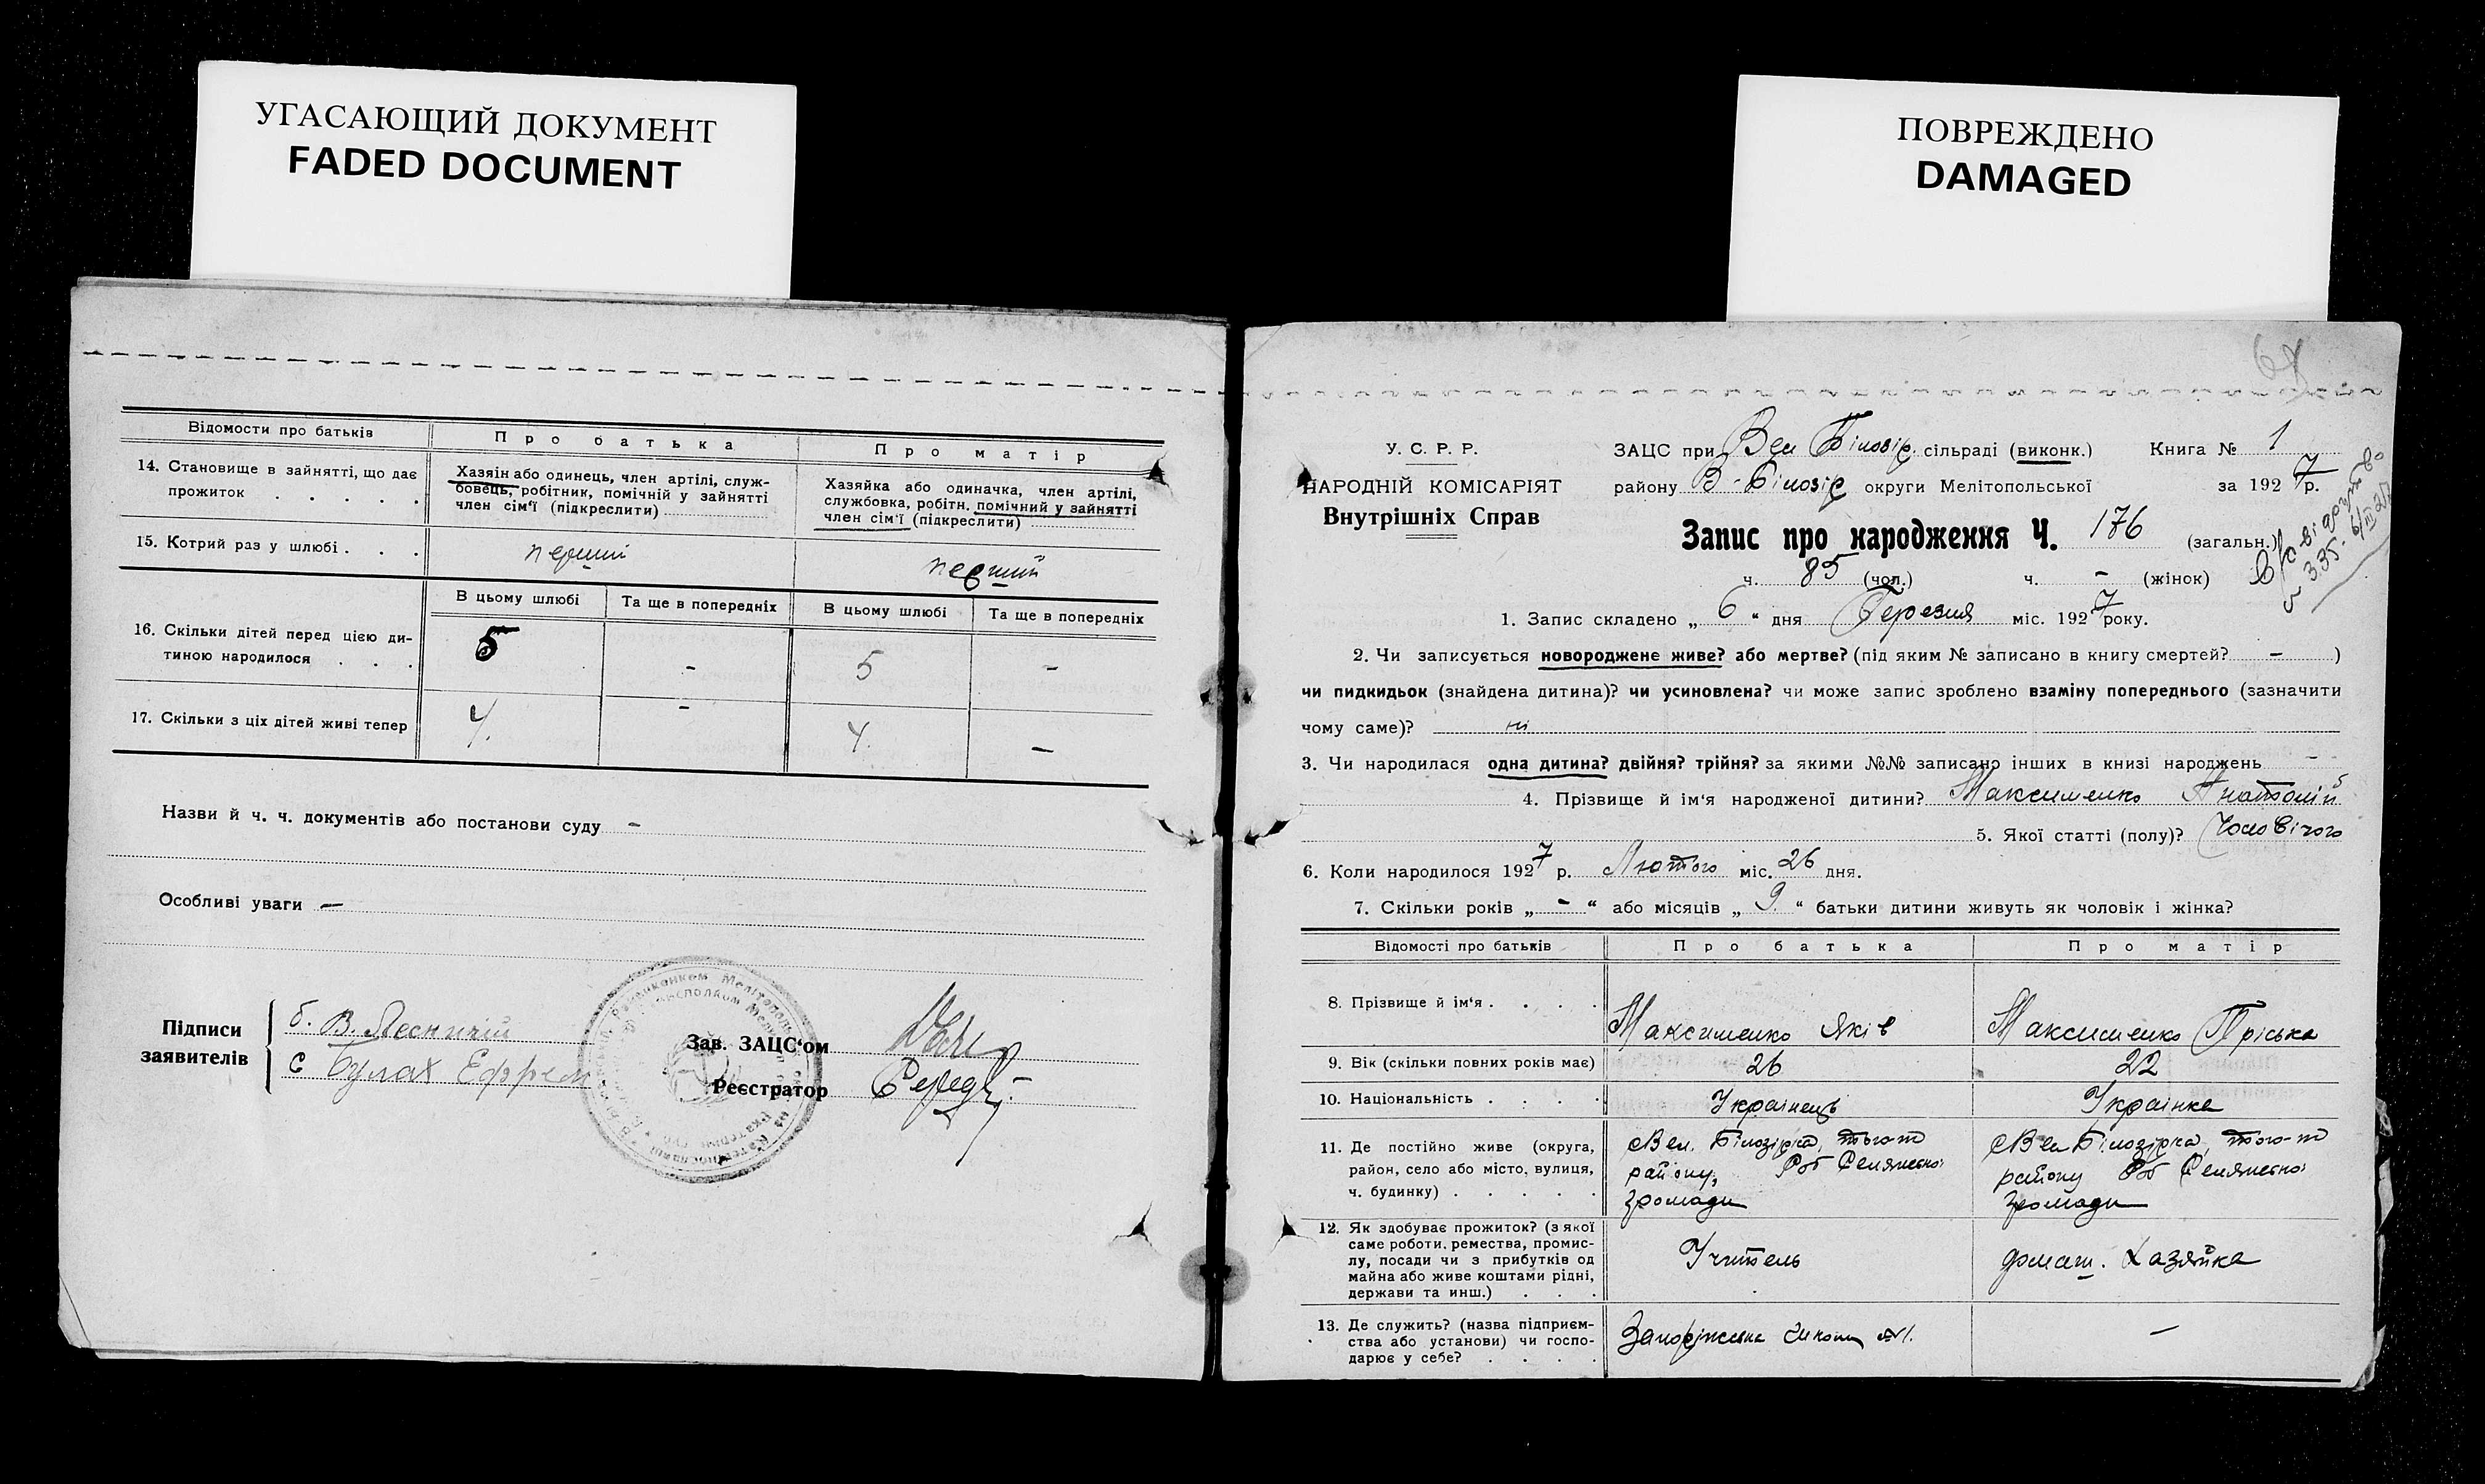 УГАСАЮЩИЙ ДОКУМЕНТ
FADED DOCUMENT
ПОВРЕЖДЕНО
DAMAGED
Відомости про батьків
Про батька
Про матір
14. Становище в зайнятті, що дає
прожиток . . . . .
Хазяїн або одинець, член артілі, служ-
бовець, робітник, помічній у зайнятті
член сім'ї (підкреслити)
Хазяйка або одиначка, член артілі,
службовка, робітн. помічний у зайнятті
член сім'ї (підкреслити)
15. Котрий раз у шлюбі . . .
перший
перший
В цьому шлюбі
Та ще в попередніх
В цьому шлюбі
Та ще в попередніх
16. Скільки дітей перед цією ди-
тиною народилося . . .
5 - 5 -
17. Скільки з ціх дітей живі тепер
4. - 4. -
Назви й ч. ч. документів або постанови суду -
Особливі уваги -
Підписи
заявителів
б. В. Лесничій
с Булах Ефрем
Зав. ЗАЦС'ом
Реєстратор
У. С. Р. Р.
НАРОДНІЙ КОМІСАРІЯТ
Внутрішніх Справ
ЗАЦС при Вел Білозір. сільраді (виконк.) Книга № 1
району В-Білозір округи Мелітопольської за 1927 р.
Запис про народження Ч. 176 (загальн.)
ч. 85 (чол.) ч. - (жінок)
335.
1. Запис складено „ 6 “ дня Березня міс. 1927 року.
2. Чи записується новороджене живе? або мертве? (під яким № записано в книгу смертей? - )
чи пидкидьок (знайдена дитина)? чи усиновлена? чи може запис зроблено взаміну попереднього (зазначити
чому саме)? ні
3. Чи народилася одна дитина? двійня? трійня? за якими №№ записано інших в книзі народжень -
4. Прізвище й ім'я народженої дитини? Максименко Анатолій
5. Якої статті (полу)? Чоловічого
6. Коли народилося 1927 р. Лютого міс. 26 дня.
7. Скільки років „ - “ або місяців „ 9. “ батьки дитини живуть як чоловік і жінка?
Відомості про батьків
Про батька
Про матір
8. Прізвище й ім'я . . . .
Максименко Яків
Максименко Пріська
9. Вік (скільки повних років має)
26
22
10. Національність . . . .
Українець
Українка
11. Де постійно живе (округа,
район, село або місто, вулиця,
ч. будинку) . . . . .
с Вел. Білозірка, того-ж
району, Роб Селянської
громади
с Вел Білозірка, того-ж
району Роб Селянської
громади
12. Як здобуває прожиток? (з якої
саме роботи, ремества, промис-
лу, посади чи з прибутків од
майна або живе коштами рідні,
держави та инш.) . . .
Учитель
домаш. Хазяйка
13. Де служить? (назва підприєм-
ства або установи) чи госпо-
дарює у себе? . . . .
Запоріжська Школа №1.
-